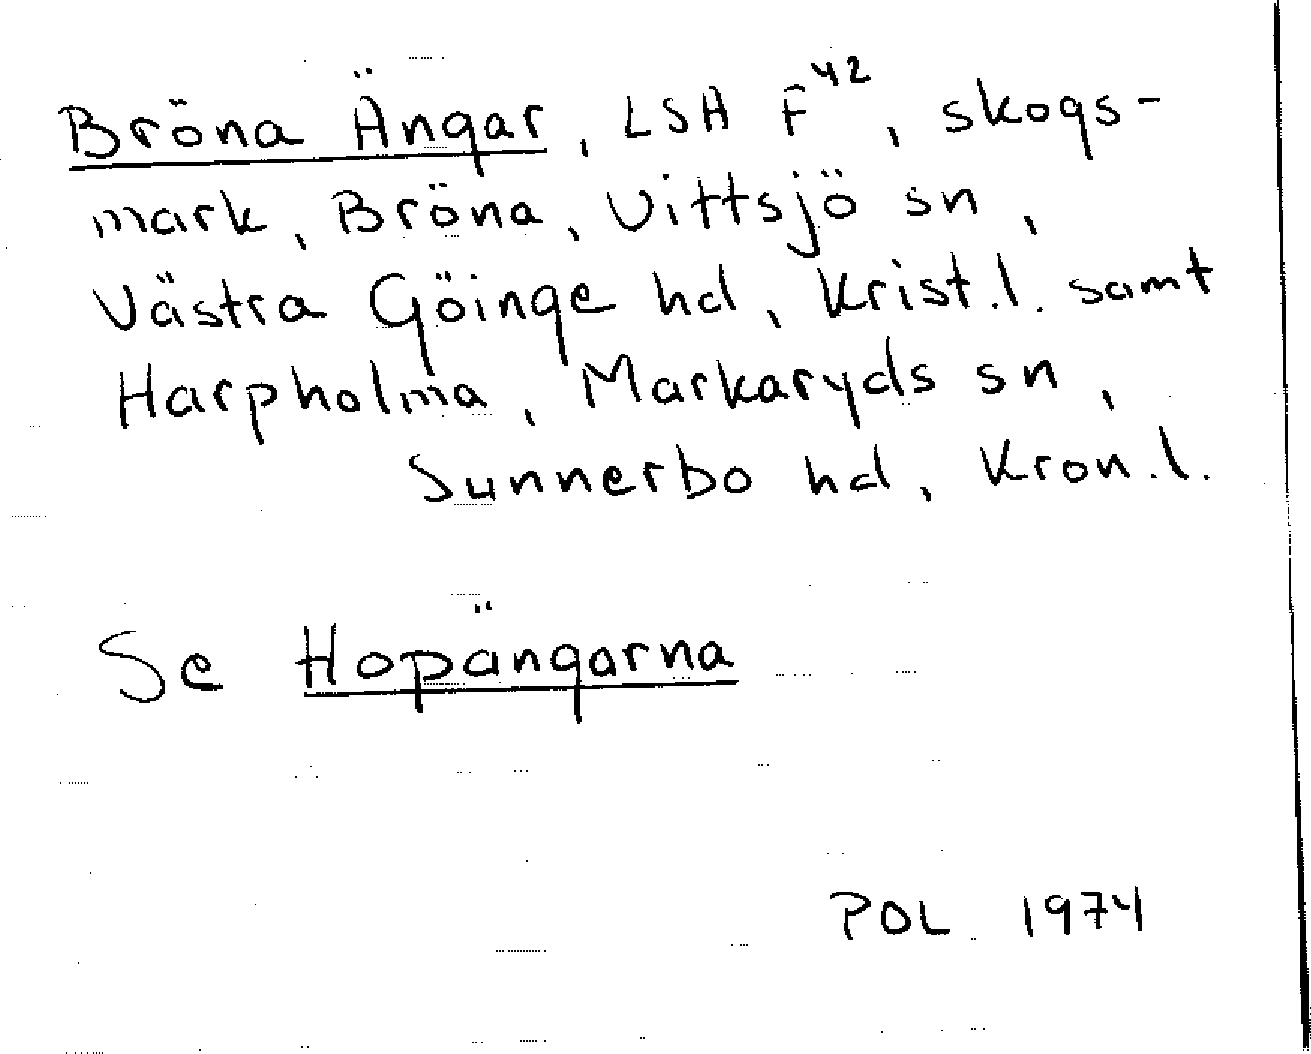 Bröna Ängar, LSA F⁴², skogs-
mark, Bröna, Vittsjö sn,
Västra Göinge hd, Krist.l. samt
Harpholma, Markaryds sn,
Sunnerbo hd, Kron.l.
Se Hopängarna
POL 1974